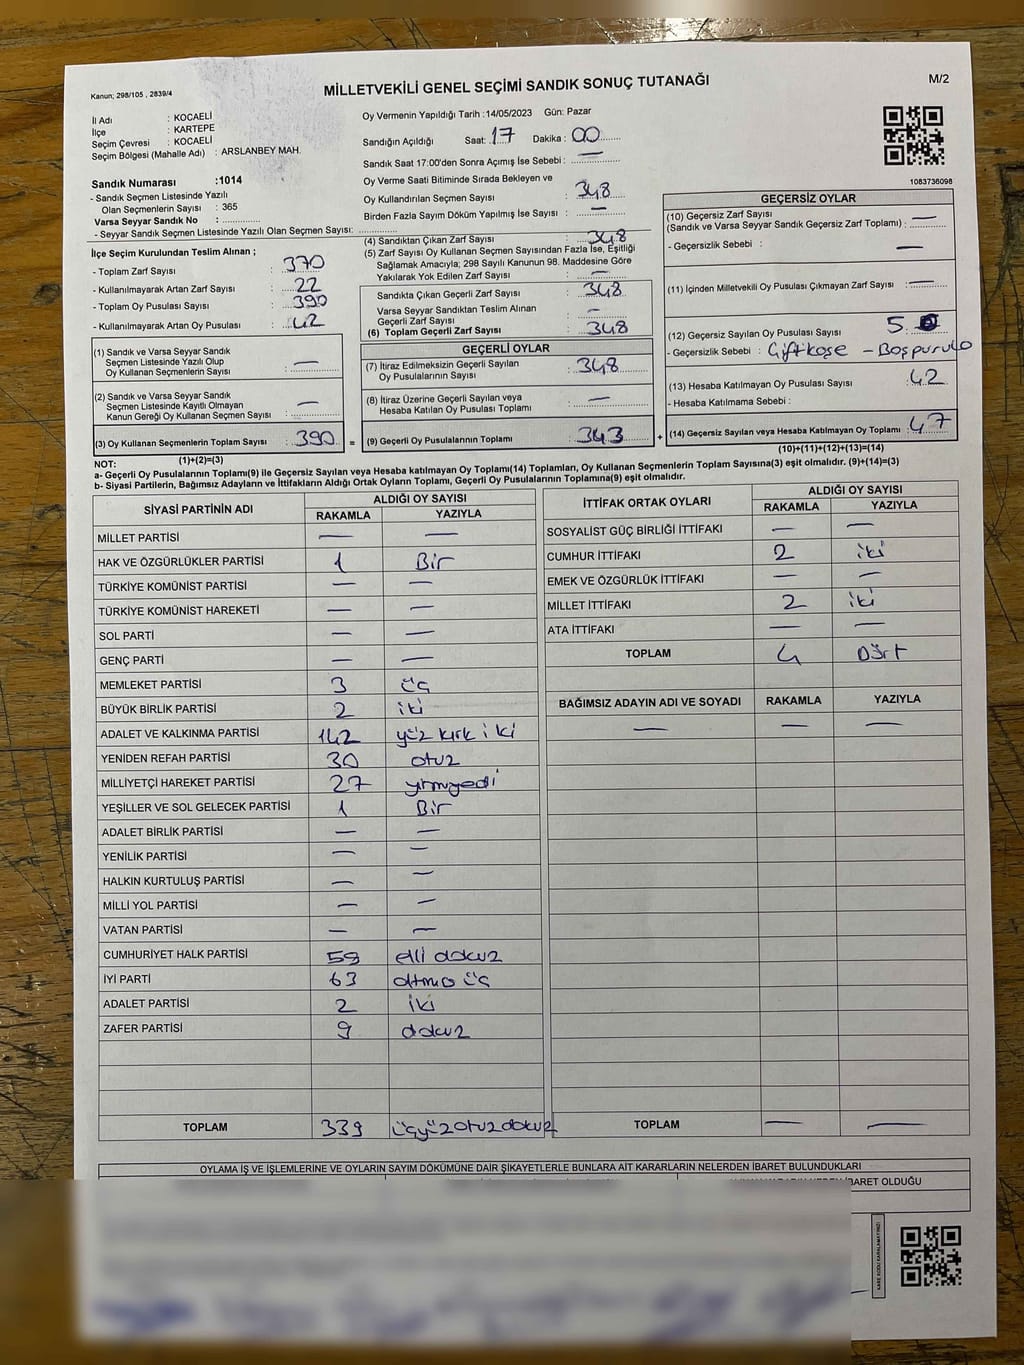 Kanun; 298/105 , 2839/4
MİLLETVEKİLİ GENEL SEÇİMİ SANDIK SONUÇ TUTANAĞI
M/2
İl Adı : KOCAELİ
İlçe : KARTEPE
Seçim Çevresi : KOCAELİ
Seçim Bölgesi (Mahalle Adı) : ARSLANBEY MAH.
Sandık Numarası :1014
- Sandık Seçmen Listesinde Yazılı
Olan Seçmenlerin Sayısı : 365
Varsa Seyyar Sandık No : ..............
- Seyyar Sandık Seçmen Listesinde Yazılı Olan Seçmen Sayısı: ..............
Oy Vermenin Yapıldığı Tarih :14/05/2023 Gün: Pazar
Sandığın Açıldığı Saat: 17 Dakika : 00
Sandık Saat 17:00'den Sonra Açımış İse Sebebi : —
Oy Verme Saati Bitiminde Sırada Bekleyen ve
Oy Kullandırılan Seçmen Sayısı : 348
Birden Fazla Sayım Döküm Yapılmış İse Sayısı : —
1083736098
İlçe Seçim Kurulundan Teslim Alınan ;
- Toplam Zarf Sayısı : 370
- Kullanılmayarak Artan Zarf Sayısı : 22
- Toplam Oy Pusulası Sayısı : 390
- Kullanılmayarak Artan Oy Pusulası : 42
(1) Sandık ve Varsa Seyyar Sandık
Seçmen Listesinde Yazılı Olup
Oy Kullanan Seçmenlerin Sayısı : —
(2) Sandık ve Varsa Seyyar Sandık
Seçmen Listesinde Kayıtlı Olmayan
Kanun Gereği Oy Kullanan Seçmen Sayısı : —
(3) Oy Kullanan Seçmenlerin Toplam Sayısı : 390 =
(1)+(2)=(3)
(4) Sandıktan Çıkan Zarf Sayısı : 348
(5) Zarf Sayısı Oy Kullanan Seçmen Sayısından Fazla İse, Eşitliği
Sağlamak Amacıyla; 298 Sayılı Kanunun 98. Maddesine Göre
Yakılarak Yok Edilen Zarf Sayısı : —
Sandıkta Çıkan Geçerli Zarf Sayısı : 348
Varsa Seyyar Sandıktan Teslim Alınan
Geçerli Zarf Sayısı : —
(6) Toplam Geçerli Zarf Sayısı : 348
GEÇERLİ OYLAR
(7) İtiraz Edilmeksizin Geçerli Sayılan
Oy Pusulalarının Sayısı : 348
(8) İtiraz Üzerine Geçerli Sayılan veya
Hesaba Katılan Oy Pusulası Toplamı : —
(9) Geçerli Oy Pusulalarının Toplamı : 343 +
GEÇERSİZ OYLAR
(10) Geçersiz Zarf Sayısı
(Sandık ve Varsa Seyyar Sandık Geçersiz Zarf Toplamı) : —
- Geçersizlik Sebebi : —
(11) İçinden Milletvekili Oy Pusulası Çıkmayan Zarf Sayısı : —
(12) Geçersiz Sayılan Oy Pusulası Sayısı : 5
- Geçersizlik Sebebi : Çiftkaşe - Boşpusula
(13) Hesaba Katılmayan Oy Pusulası Sayısı : 42
- Hesaba Katılmama Sebebi :
(14) Geçersiz Sayılan veya Hesaba Katılmayan Oy Toplamı : 47
(10)+(11)+(12)+(13)=(14)
NOT:
a- Geçerli Oy Pusulalarının Toplamı(9) ile Geçersiz Sayılan veya Hesaba katılmayan Oy Toplamı(14) Toplamları, Oy Kullanan Seçmenlerin Toplam Sayısına(3) eşit olmalıdır. (9)+(14)=(3)
b- Siyasi Partilerin, Bağımsız Adayların ve İttifakların Aldığı Ortak Oyların Toplamı, Geçerli Oy Pusulalarının Toplamına(9) eşit olmalıdır.
SİYASİ PARTİNİN ADI ALDIĞI OY SAYISI
RAKAMLA YAZIYLA
MİLLET PARTİSİ — —
HAK VE ÖZGÜRLÜKLER PARTİSİ 1 Bir
TÜRKİYE KOMÜNİST PARTİSİ — —
TÜRKİYE KOMÜNİST HAREKETİ — —
SOL PARTİ — —
GENÇ PARTİ — —
MEMLEKET PARTİSİ 3 üç
BÜYÜK BİRLİK PARTİSİ 2 iki
ADALET VE KALKINMA PARTİSİ 142 yüz kırk iki
YENİDEN REFAH PARTİSİ 30 otuz
MİLLİYETÇİ HAREKET PARTİSİ 27 yirmiyedi
YEŞİLLER VE SOL GELECEK PARTİSİ 1 Bir
ADALET BİRLİK PARTİSİ — —
YENİLİK PARTİSİ — —
HALKIN KURTULUŞ PARTİSİ — —
MİLLİ YOL PARTİSİ — —
VATAN PARTİSİ — —
CUMHURİYET HALK PARTİSİ 59 elli dokuz
İYİ PARTİ 63 altmış üç
ADALET PARTİSİ 2 iki
ZAFER PARTİSİ 9 dokuz
TOPLAM 339 üçyüzotuzdokuz
İTTİFAK ORTAK OYLARI ALDIĞI OY SAYISI
RAKAMLA YAZIYLA
SOSYALİST GÜÇ BİRLİĞİ İTTİFAKI — —
CUMHUR İTTİFAKI 2 iki
EMEK VE ÖZGÜRLÜK İTTİFAKI — —
MİLLET İTTİFAKI 2 iki
ATA İTTİFAKI — —
TOPLAM 4 Dört
BAĞIMSIZ ADAYIN ADI VE SOYADI RAKAMLA YAZIYLA
— — —
TOPLAM — —
OYLAMA İŞ VE İŞLEMLERİNE VE OYLARIN SAYIM DÖKÜMÜNE DAİR ŞİKAYETLERLE BUNLARA AİT KARARLARIN NELERDEN İBARET BULUNDUKLARI
İBARET OLDUĞU
KARE KODU KARALAMAYINIZ!